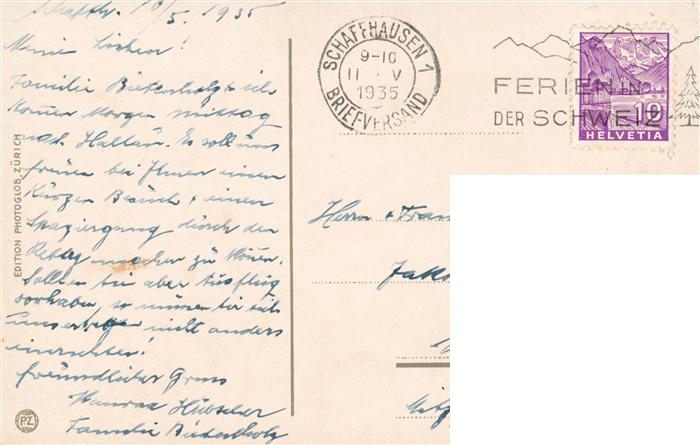 Schaffh. 10/5. 1935
Meine Lieben!
Familie Bietenholz & ich
können Morgen mittag
nach Hallau. Es soll uns
freuen bei Ihnen einen
kurzen Besuch & einen
Spaziergang durch den
machen zu können.
Sollten Sie aber Ausflug
vorhaben, so müssen Sie sich
unsertwegen nicht anders
einrichten!
freundlicher Gruss
Familie Bietenholz
EDITION PHOTOGLOB, ZÜRICH
PZ
SCHAFFHAUSEN 1
9-10
11 · V
1935
BRIEFVERSAND
FERIEN IN
DER SCHWEIZ
10
HELVETIA
Herrn & Frau
Jak